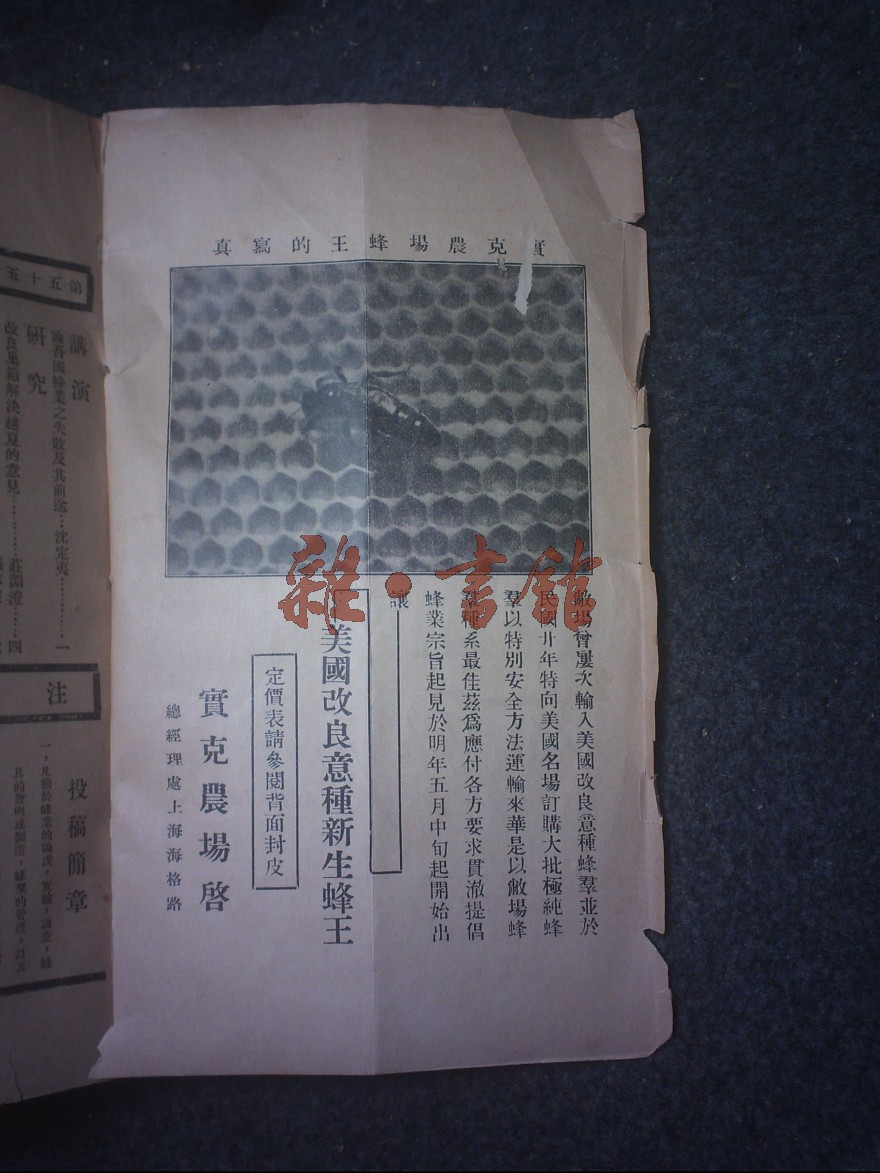 實克農場蜂王的寫真
敝場曾屢次輸入美國改良意種蜂羣並於
民國廿年特向美國名場訂購大批極純蜂
羣以特別安全方法運輸來華是以敝場蜂
羣種系最佳茲爲應付各方要求貫澈提倡
蜂業宗旨起見於明年五月中旬起開始出
讓
美國改良意種新生蜂王
定價表請參閱背面封皮
實克農場啓
總經理處上海海格路
雜·書館
第五十五
講演
論吾國蜂業之失敗及其前途…沈定夷…………一
研究
改良巢箱解決越夏的意見…………莊淵澄…四
注
投稿簡章
一，凡關於蜂業的論說，實驗，調查，蜂
具的發明或製造，蜂羣的管理，以及